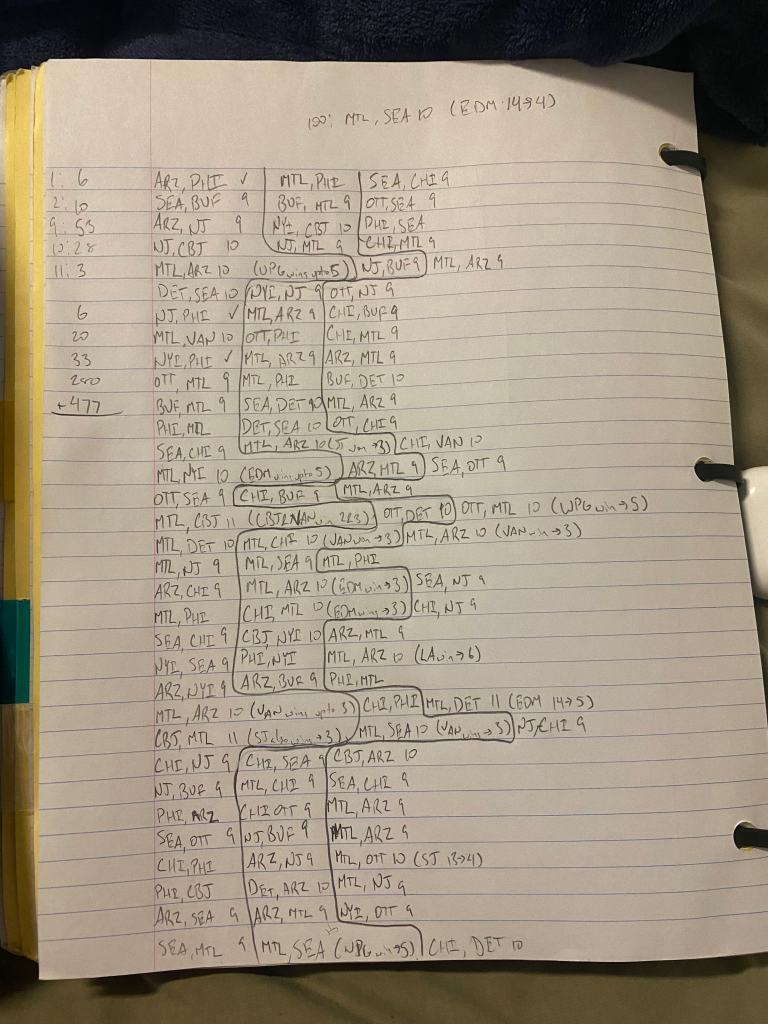 100: MTL, SEA 10 (EDM 14→4)
1: 6 ARZ, PHI ✓ MTL, PHI SEA, CHI 9
2: 10 SEA, BUF 9 BUF, MTL 9 OTT, SEA 9
9: 53 ARZ, NJ 9 NYI, CBJ 10 PHI, SEA
10: 28 NJ, CBJ 10 NJ, MTL 9 CHI, MTL 9
11: 3 MTL, ARZ 10 (WPG wins upto 5) NJ, BUF 9 MTL, ARZ 9
DET, SEA 10 NYI, NJ 9 OTT, NJ 9
6 NJ, PHI ✓ MTL, ARZ 9 CHI, BUF 9
20 MTL, VAN 10 OTT, PHI CHI, MTL 9
33 NYI, PHI ✓ MTL, ARZ 9 ARZ, MTL 9
280 OTT, MTL 9 MTL, PHI BUF, DET 10
+477 BUF, MTL 9 SEA, DET 10 MTL, ARZ 9
PHI, MTL DET, SEA 10 OTT, CHI 9
SEA, CHI 9 MTL, ARZ 10 (SJ win→3) CHI, VAN 10
MTL, NYI 10 (EDM wins upto 5) ARZ, MTL 9 SEA, OTT 9
OTT, SEA 9 CHI, BUF 9 MTL, ARZ 9
MTL, CBJ 11 (CBJ & VAN win 2&3) OTT, DET 10 OTT, MTL 10 (WPG win→5)
MTL, DET 10 MTL, CHI 10 (VAN win→3) MTL, ARZ 10 (VAN win→3)
MTL, NJ 9 MTL, SEA 9 MTL, PHI
ARZ, CHI 9 MTL, ARZ 10 (EDM win→3) SEA, NJ 9
MTL, PHI CHI, MTL 10 (EDM win→3) CHI, NJ 9
SEA, CHI 9 CBJ, NYI 10 ARZ, MTL 9
NYI, SEA 9 PHI, NYI MTL, ARZ 10 (LA win→6)
ARZ, NYI 9 ARZ, BUF 9 PHI, MTL
MTL, ARZ 10 (VAN wins upto 3) CHI, PHI MTL, DET 11 (EDM 14→5)
CBJ, MTL 11 (SJ also win→3) MTL, SEA 10 (VAN win→3) NJ, CHI 9
CHI, NJ 9 CHI, SEA 9 CBJ, ARZ 10
NJ, BUF 9 MTL, CHI 9 SEA, CHI 9
PHI, ARZ CHI OTT 9 MTL, ARZ 9
SEA, OTT 9 NJ, BUF 9 MTL, ARZ 9
CHI, PHI ARZ, NJ 9 MTL, OTT 10 (SJ 13→4)
PHI, CBJ DET, ARZ 10 MTL, NJ 9
ARZ, SEA 9 ARZ, MTL 9 NYI, OTT 9
SEA, MTL 9 MTL, SEA (WPG win→5) CHI, DET 10